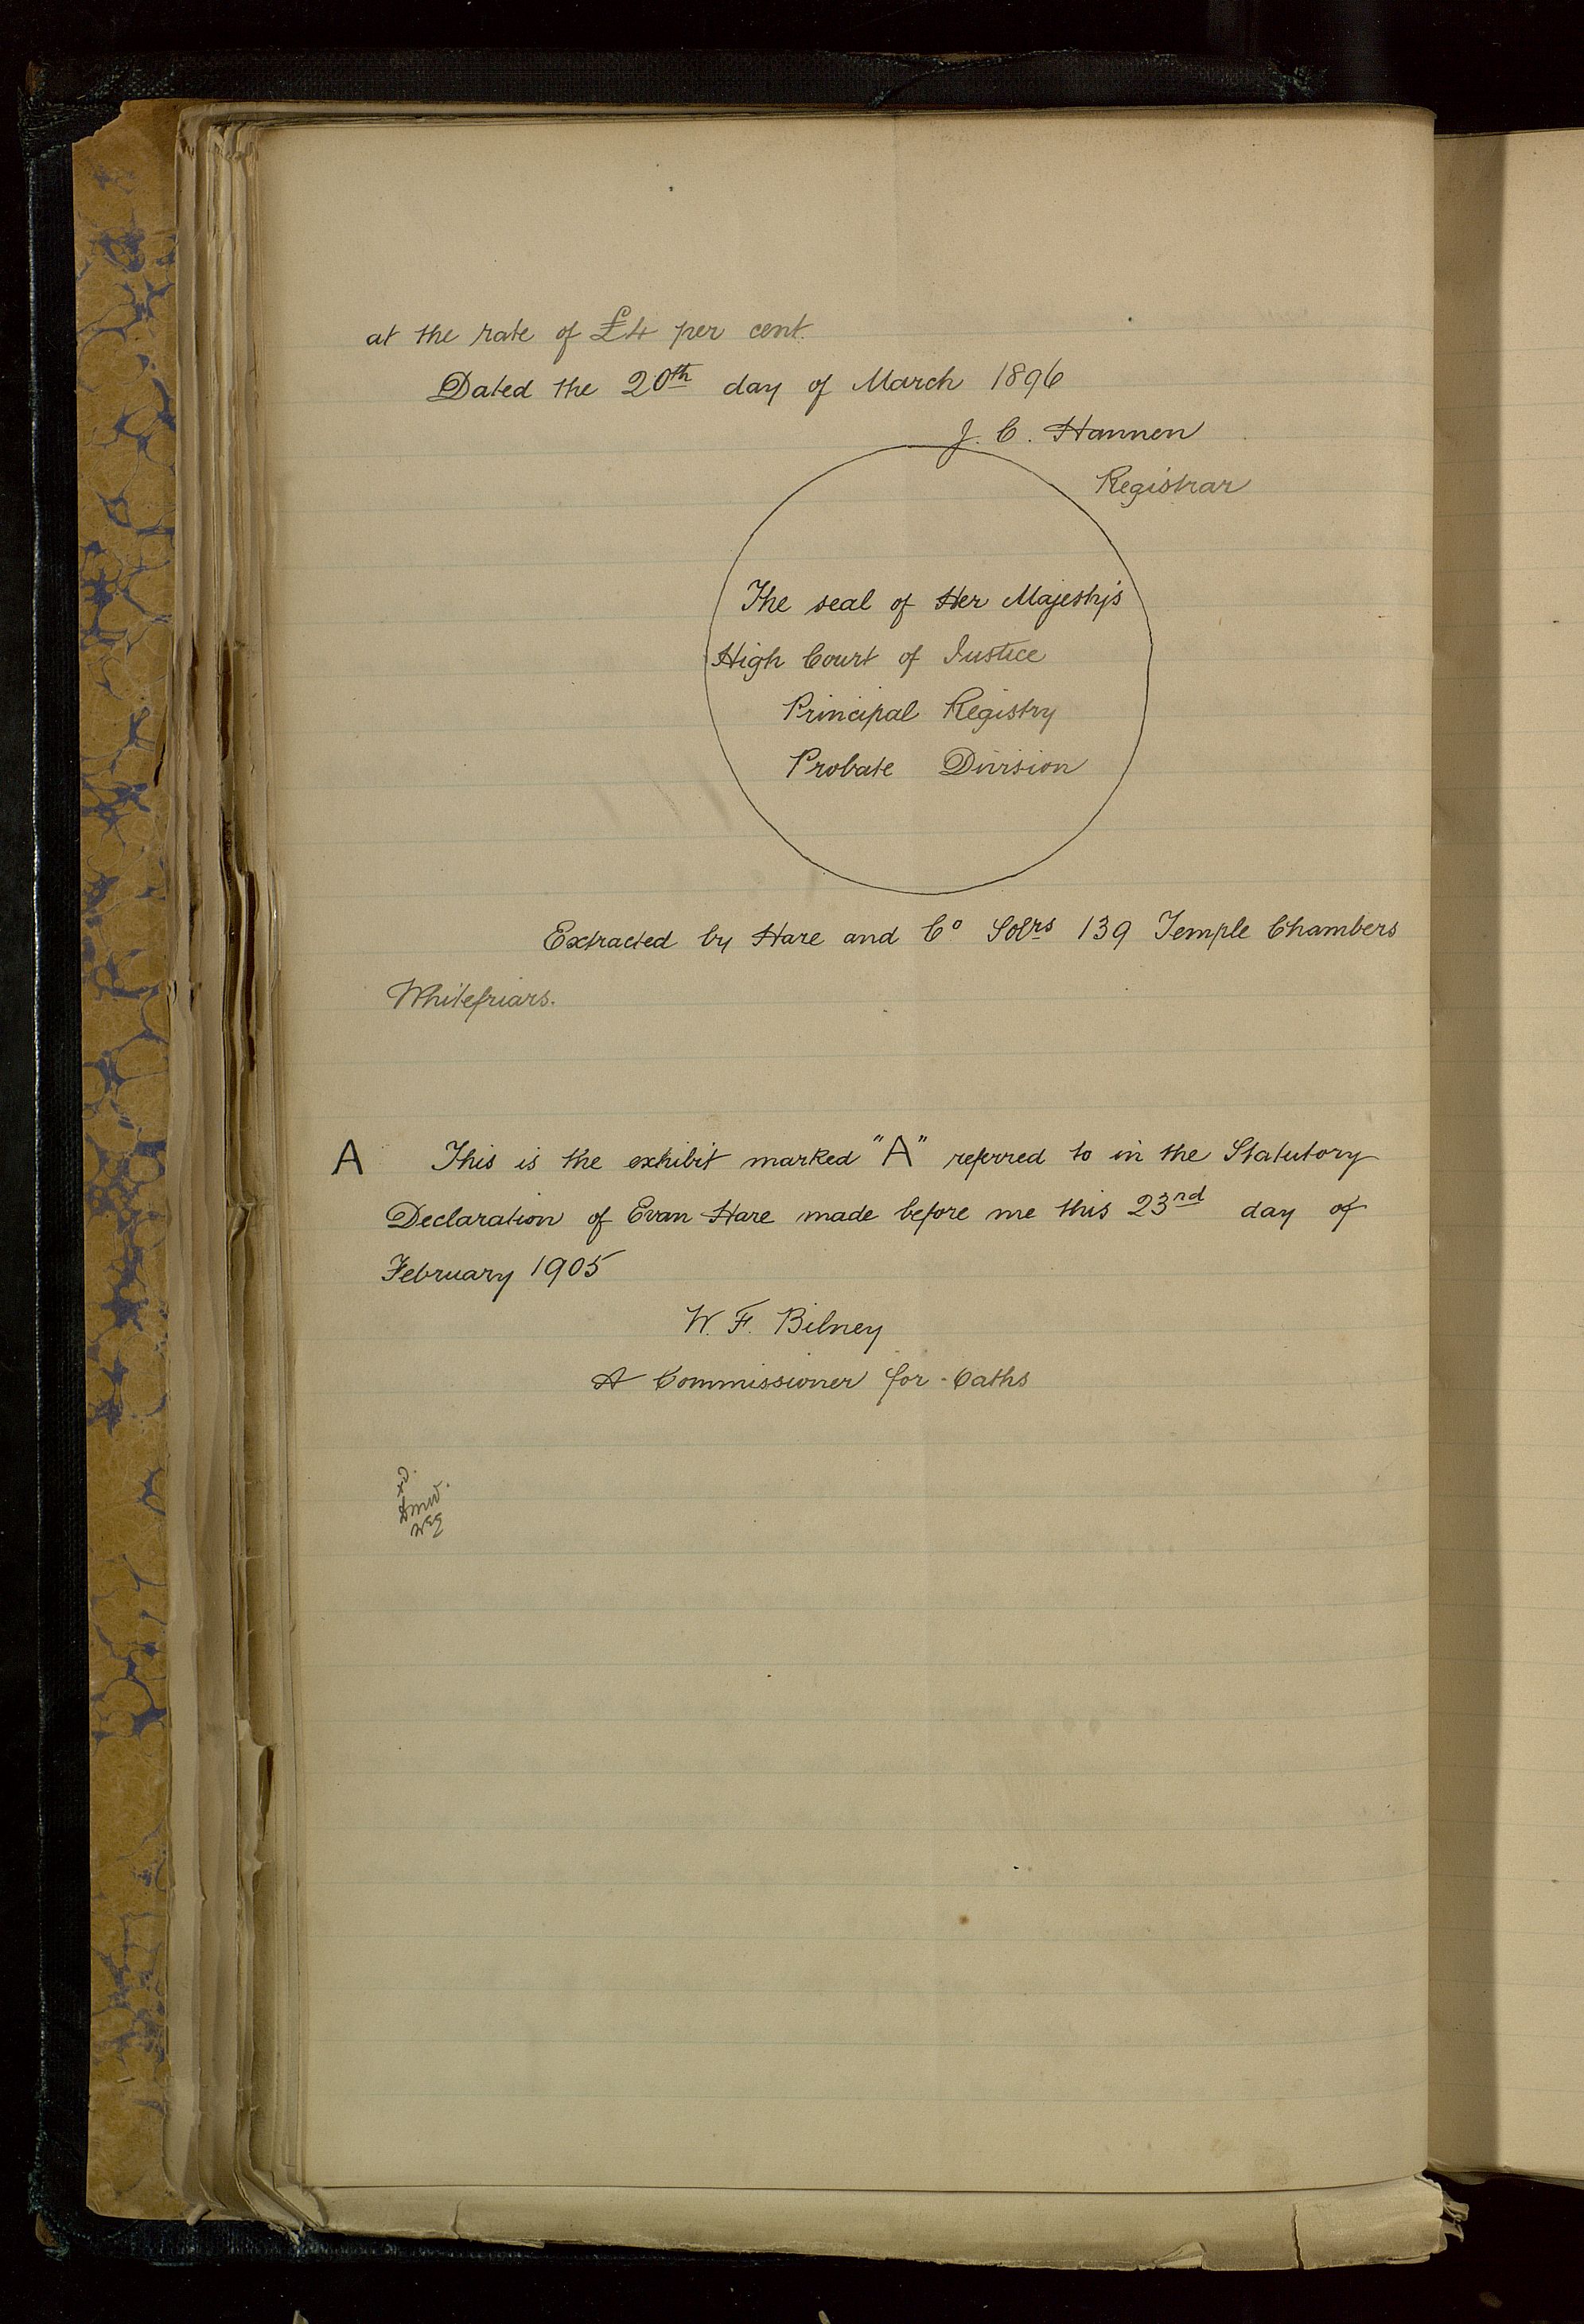 at the rate of £4 per cent.
Dated the 20th day of March 1896
J. C. Hannen
Registrar
The seal of Her Majesty's
High Court of Justice
Principal Registry
Probate Division
Extracted by Hare and Co Solrs 139 Temple Chambers
Whitefriars.
A This is the exhibit marked "A" referred to in the Statutory
Declaration of Evan Hare made before me this 23rd day of
February 1905
W. F. Bilney
A Commissioner for Oaths